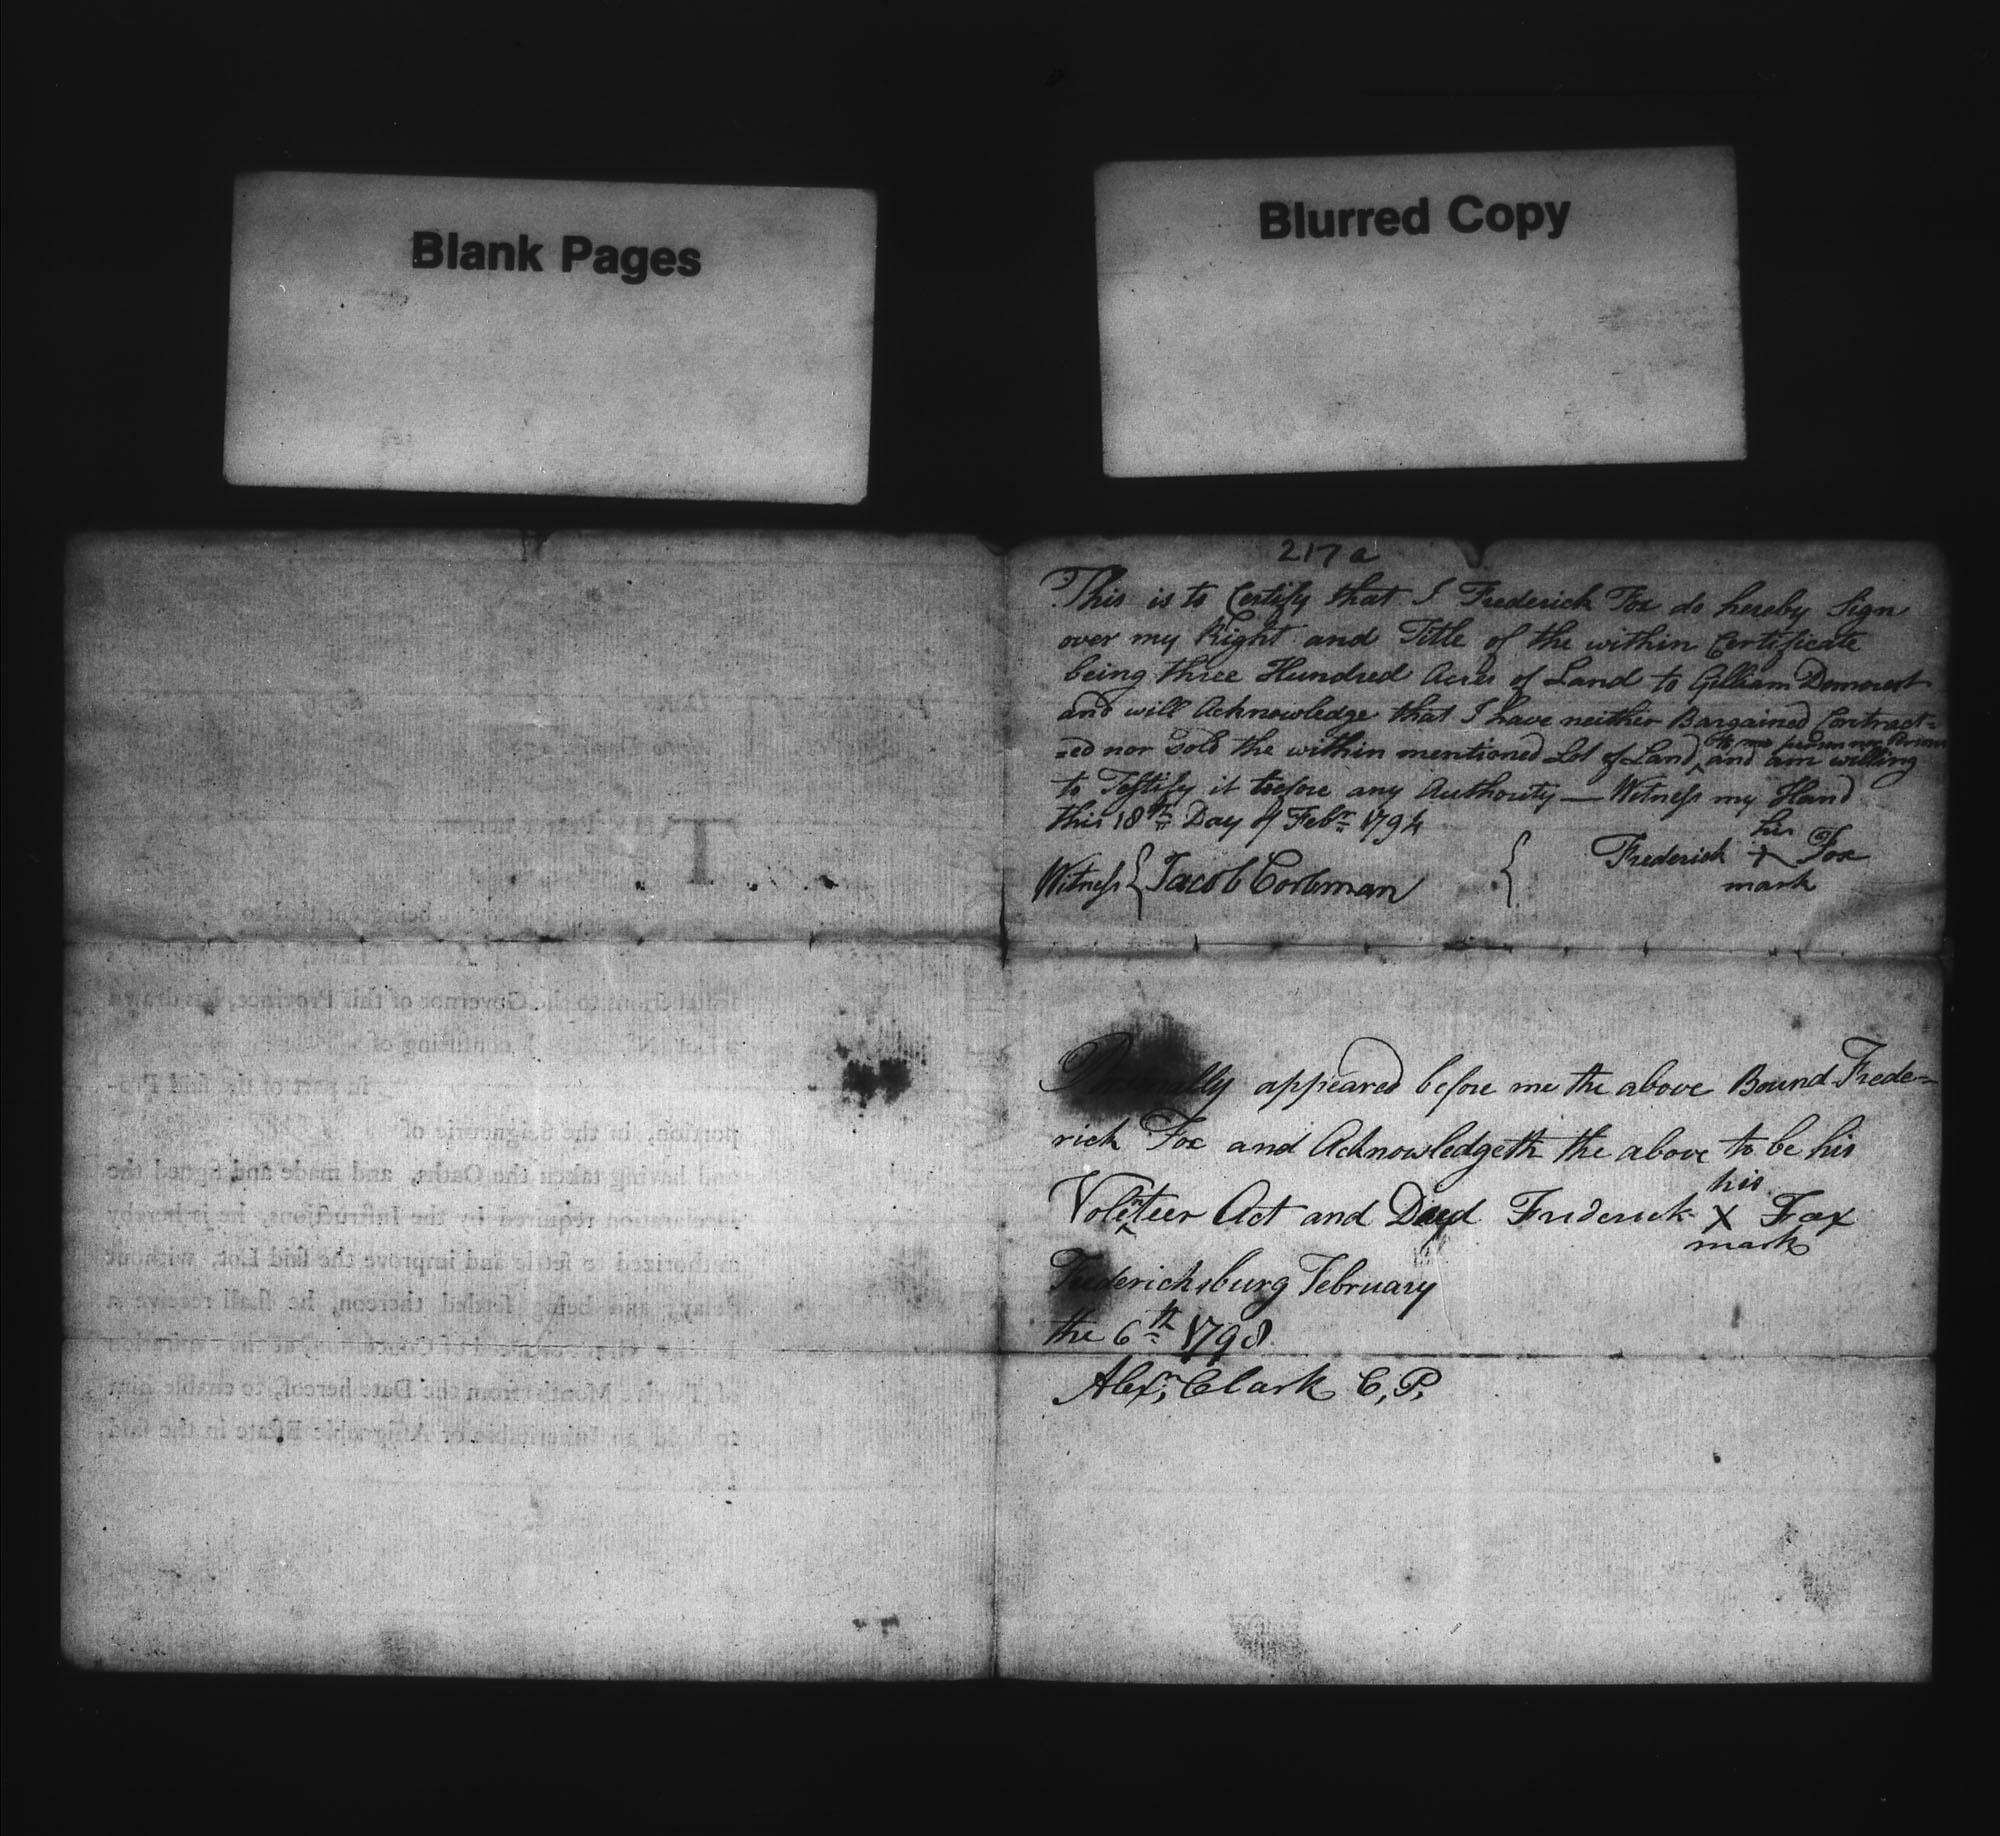 Blank Pages
Blurred Copy
217a
This is to Certify that I Frederick Fox do hereby Sign
over my Right and Title of the within Certificate
being three Hundred Acres of Land to Gilliam Demorest
and will Acknowledge that I have neither Bargained Contract=
=ed nor Sold the within mentioned Lot of Land ^ to no person nor Persons and am willing
to Testify it before any Authority — Witness my Hand
this 18th Day of Febr 1794
his
Frederick + Fox
mark
Witness { Jacob Corbman
Personally appeared before me the above Bound Frede=
rick Fox and Acknowledgeth the above to be his
Volenteer Act and Deed Frederick X Fox
his
mark
Frederichsburg February
the 6th 1798
Alexr Clark C,P,
being entitled to
Acres of Land, by his Majesty's
Instructions to the Governor of this Province, has drawn
a Lot (No. ) consisting of
in part of the said Pro-
portion, in the Seigneurie of
and having taken the Oaths, and made and signed the
Declaration required by the Instructions, he is hereby
authorized to settle and improve the said Lot, without
delay; and being settled thereon, he shall receive a
of Concession, at the Expiration
of Twelve Months from the Date hereof, to enable him
to hold an Inheritable or Assignable Estate in the said